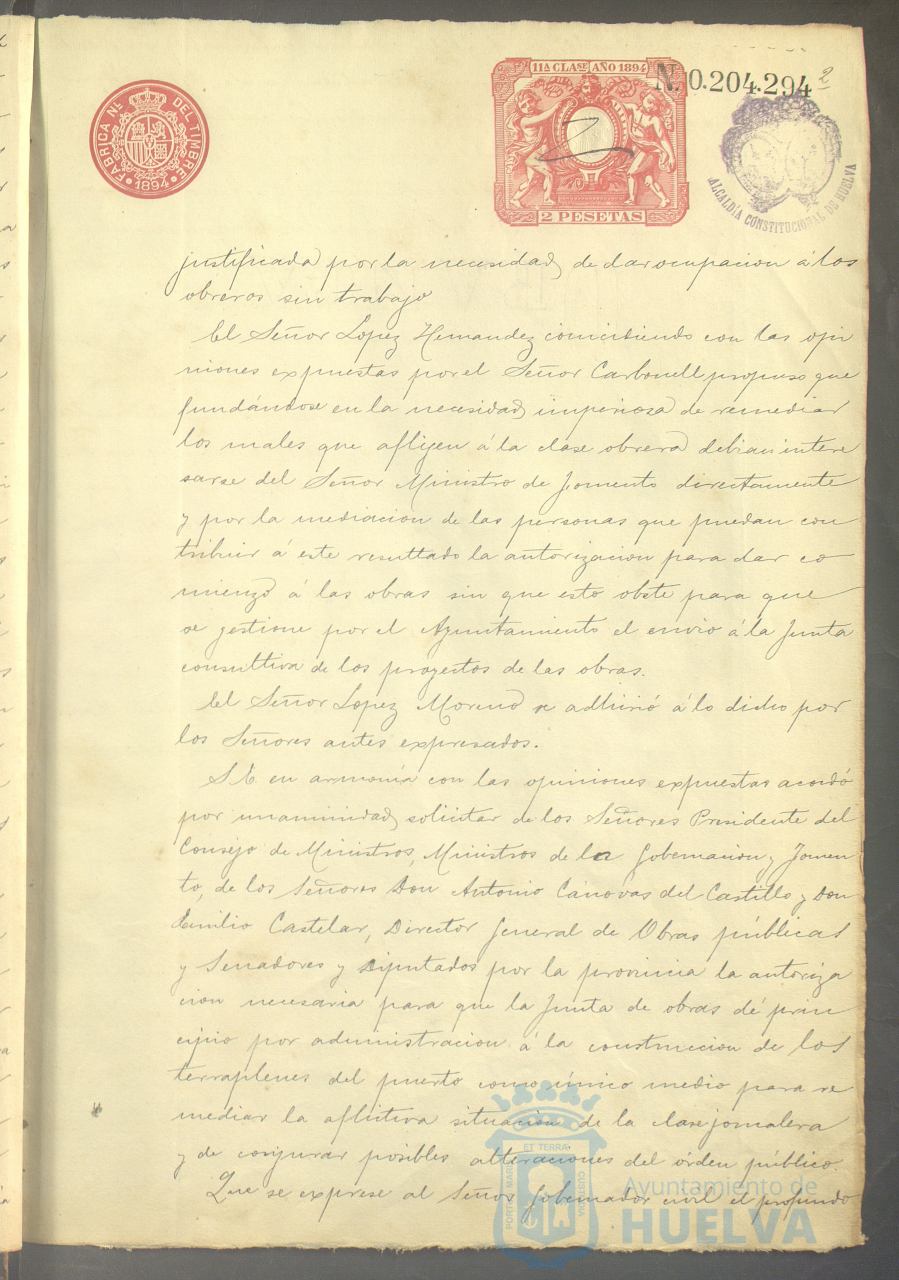 FABRICA NL. DEL TIMBRE
1894
11ª CLASE AÑO 1894
2 PESETAS
N. 0.204.294
2
ALCALDÍA CONSTITUCIONAL DE HUELVA
justificada por la necesidad de dar ocupacion á los
obreros sin trabajo
El Señor Lopez Hernandez coincidiendo con las opi
niones expuestas por el Señor Carbonell propuso que
fundándose en la necesidad imperiosa de remediar
los males que afligen á la clase obrera debian intere
sarse del Señor Ministro de Fomento directamente
y por la mediacion de las personas que puedan con
tribuir á este resultado la autorizacion para dar co
mienzo á las obras sin que esto obste para que
se gestione por el Ayuntamiento el envio á la Junta
consultiva de los proyectos de las obras.
El Señor Lopez Moreno se adhirió á lo dicho por
los Señores antes expresados.
S. E. en armonía con las opiniones expuestas acordó
por unanimidad solicitar de los Señores Presidente del
Consejo de Ministros, Ministros de la Gobernacion y Fomen
to, de los Señores Don Antonio Cánovas del Castillo y Don
Emilio Castelar, Director General de Obras públicas
y Senadores y Diputados por la provincia la autoriza
cion necesaria para que la Junta de obras dé prin
cipio por administracion á la construccion de los
terraplenes del puerto como único medio para re
mediar la aflictiva situacion de la clase jornalera
y de conjurar posibles alteraciones del órden público.
Que se exprese al Señor Gobernador civil el profundo
PORTUS MARIS ET TERRAE CUSTODIA
Ayuntamiento de
HUELVA